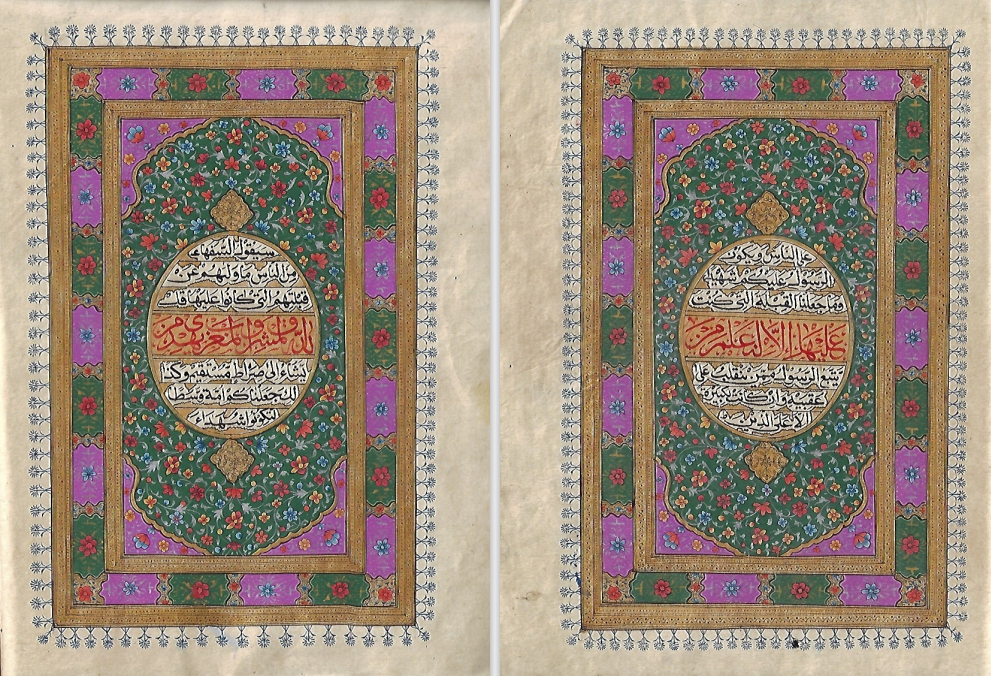 سيقول السفهاء
من الناس ما وليهم عن
قبلتهم التي كانوا عليها قل
لله المشرق والمغرب يهدي من
يشاء الى صراط مستقيم وكذ
لك جعلناكم امة وسطا
لتكونوا شهداء
على الناس ويكون
الرسول عليكم شهيدا
وما جعلنا القبلة التي كنت
عليها الا لنعلم من
يتبع الرسول ممن ينقلب على
عقبيه وان كانت لكبيرة
الا على الذين